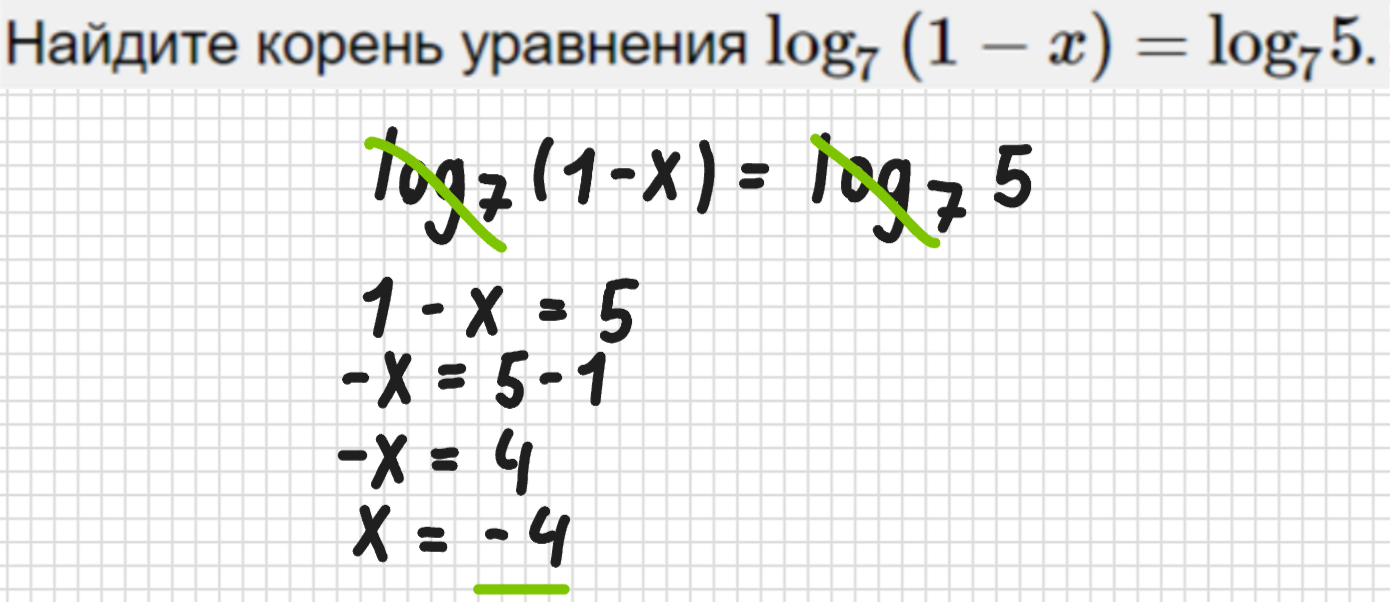 Найдите корень уравнения log₇ (1 − x) = log₇ 5.
log₇ (1-x) = log₇ 5
1 - x = 5
-x = 5-1
-x = 4
x = -4